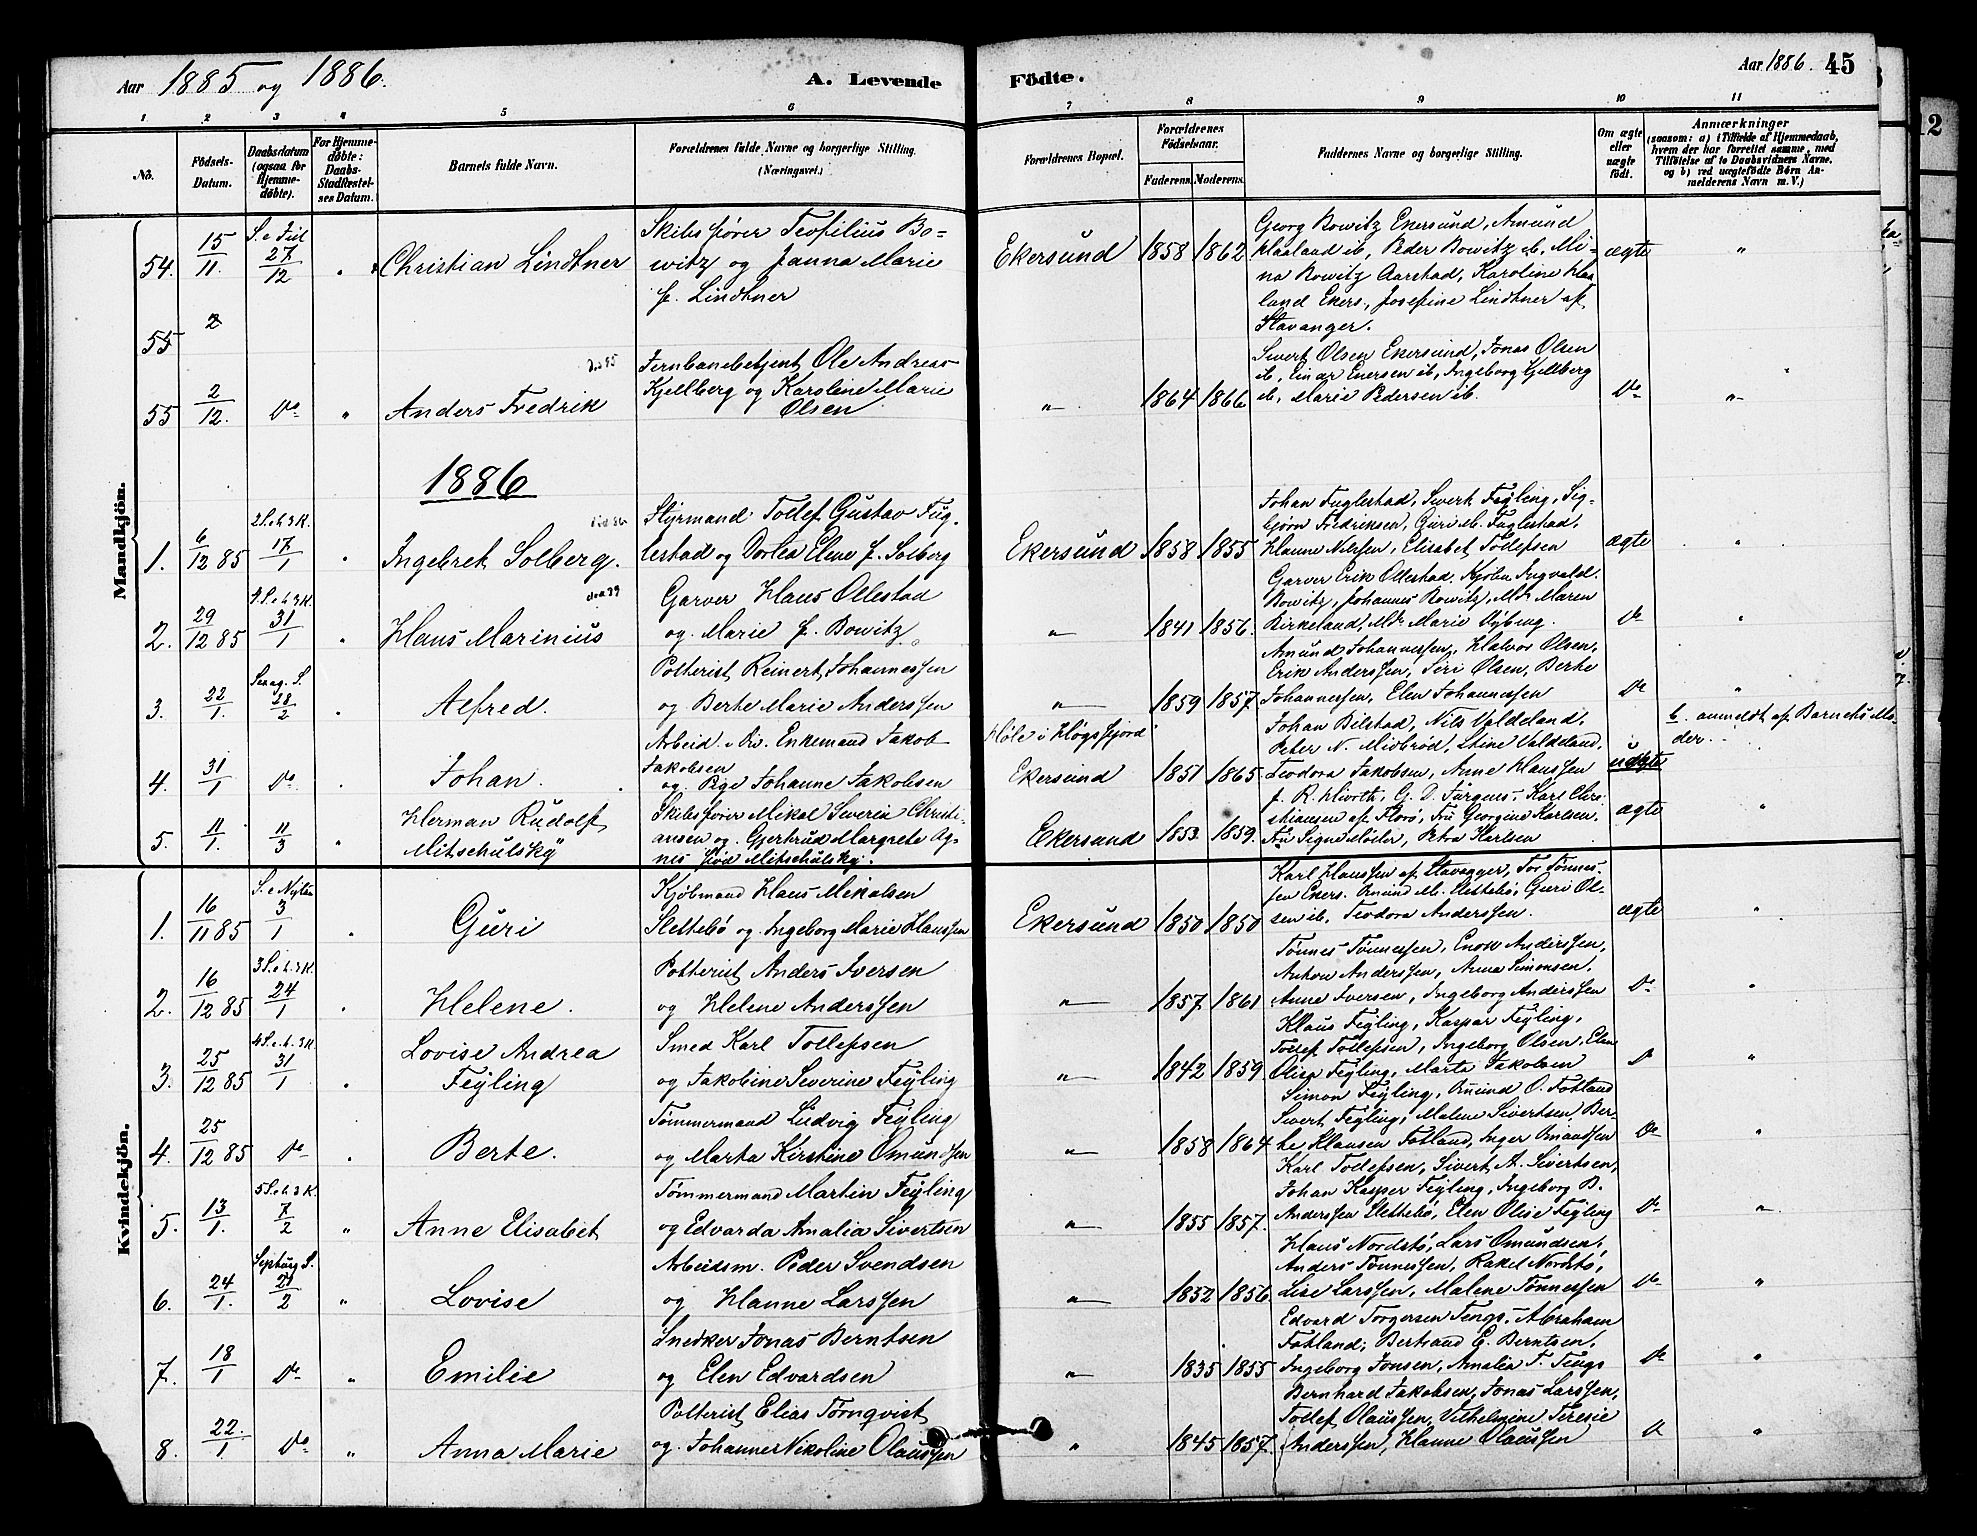 Aar 1885 og 1886.
A. Levende Födte.
Aar 1886. 45
1 2 3 4 5 6 7 8 9 10 11
No.
Födsels-Datum.
Daabsdatum (ogsaa for Hjemmedöbte).
For Hjemmedøbte: Daabs-Stadfæstelses Datum.
Barnets fulde Navn.
Forældrenes fulde Navne og borgerlige Stilling. (Næringsvei.)
Forældrenes Bopæl.
Forældrenes Födselsaar.
Faderens. Moderens.
Faddernes Navne og borgerlige Stilling.
Om ægte eller uægte födt.
Anmærkninger (saasom: a) i Tilfælde af Hjemmedaab, hvem der har forrettet samme, med Tilföielse af to Daabsvidners Navne, og b) ved uægtefödte Børn Anmelderens Navn m.V.)
Mandkjön.
54. 15/11 S. e Jul 27/12 " Christian Lindtner
Skibsfører Teofilius Bo-
witz og Janna Marie
f. Lindtner
Ekersund 1858 1862
Georg Bowitz Ekersund, Amund
Klaaland ib, Peder Bowitz ib, Mi-
na Bowitz Aarstad, Karoline Klaa
land Ekers., Josefine Lindtner af
Stavanger.
ægte "
55 2
55 2/12. do " Anders Fredrik
Jernbanebetjent Ole Andreas
Kjellberg og Karoline Marie
Olsen
" 1864 1866
Sivert Olsen Ekersund, Jonas Olsen
ib, Einar Enersen ib, Ingeborg Kjellberg
ib, Marie Pedersen ib.
do "
1886
1. 6/12 85 2 S. e. h. 3 K. 17/1 " Ingebret Solberg.
Styrmand Tollef Gustav Fug-
lestad og Dortea Elene f. Solberg
Ekersund 1858 1855
Johan Fuglestad, Sivert Feyling, Sig-
bjørn Fredriksen, Guri M. Fuglestad,
Hanne Nilssen, Elisabet Tollefsen
ægte "
2. 29/12 85 4 S. e. h. 3 K. 31/1 " Hans Marinius
Garver Hans Ollestad
og Marie f. Bowitz
" 1841 1856.
Garver Erik Ollestad, Kjøbm Ingvald
Bowitz, Johannes Bowitz, Md. Maren
Birkeland, Md. Marie Nyberg.
do "
3. 22/1. Sexag. S. 28/2 " Alfred.
Potterist Reinert Johannessen
og Berte Marie Anderssen
" 1859 1857
Amund Johannessen, Halvor Olsen,
Erik Anderssen, Siri Olsen, Berte
Johannessen, Elen Johannessen
do "
4. 31/1 do " Johan.
Arbeid. i Div. Enkemand Jakob
Jakobsen
og Pige Johanne Jakobsen
Høle i Høgsfjord
Ekersund 1851 1865
Johan Bilstad, Nils Valdeland,
Peter N. Midbrød, Stine Valdeland,
Teodora Jakobsen, Anne Hanssen
uægte
b. anmeldt af Barnets Mo-
der.
5. 11/1. 11/3 " Herman Rudolf
Mitschulsky
Skibsfører Mikal Severin Christi-
ansen og Gjertrud Margrete Ag-
nes født Mitschulsky.
Ekersund 1853 1859.
f. R. Hiorth, G. D. Jürgens, Karl Chri-
stiansen af Florø, Fru Georgine Karlsen,
Fru Signe Møller, Petra Karlsen
ægte "
Kvindekjön.
1. 16/11 85 S. e Nytaar 3/1 " Guri
Kjøbmand Hans Mikalsen
Slettebø og Ingeborg Marie Hanssen
Ekersund 1850 1850
Karl Hanssen af Stavanger, Tor Tønnes-
sen Ekers. Omund M. Slettebø, Guri Ol-
sen ib, Teodora Anderssen.
ægte "
2. 16/12 85 3 S. e. h. 3 K. 24/1 " Helene.
Potterist Anders Iversen
og Helene Anderssen
" 1857 1861
Tønnes Tønnessen, Enok Anderssen,
Anton Anderssen, Anna Simonsen,
Anne Iversen, Ingeborg Anderssen
do "
3. 25/12 85 4 S. e. h. 3 K. 31/1 " Lovise Andrea
Feyling
Smed Karl Tollefsen
og Jakobine Severine Feyling
" 1842 1859.
Klaus Feyling, Kaspar Feyling,
Tollef Tollefsen, Ingeborg Olsen, Elen
Olisa Feyling, Marta Jakobsen
do "
4. 25/12 85 do " Berte.
Tømmermand Ludvig Feyling
og Marta Kirstine Omundsen
" 1858 1864
Simon Feyling, Omund O. Fotland
Sivert Feyling, Malene Sivertsen, Ber-
te Klausen Fotland, Inger Omundsen
do "
5. 13/1. 5 S. e. h. 3 K. 7/2 " Anne Elisabet
Tømmermand Martin Feyling
og Edvarda Amalia Sivertsen
" 1855 1857.
Karl Tollefsen, Sivert A. Sivertsen,
Johan Kasper Feyling, Ingeborg B.
Anderssen Slettebø, Elen Olise Feyling
do "
6. 24/1. Septuag S. 21/2 " Lovise
Arbeidsm. Peder Svendsen
og Hanne Larssen
" 1852 1856
Hans Nordstø, Lars Omundsen,
Anders Tønnessen, Rakel Nordstø,
Lise Larssen, Malene Tønnessen
do "
7. 18/1 do " Emilie
Snedker Jonas Berntsen
og Elen Edvardsen
" 1835 1855
Edvard Torgersen Tengs, Abraham
Fotland, Bertrand E. Berntsen,
Ingeborg Jonsen, Amalia T. Tengs
do "
8. 22./1 do " Anna Marie
Potterist Elias Törnqvist
og Johanne Nikoline Olaussen
" 1845 1857.
Bernhard Jakobsen, Jonas Larssen,
Tollef Olaussen, Vilhelmine Teresie
Anderssen, Hanne Olaussen
do "